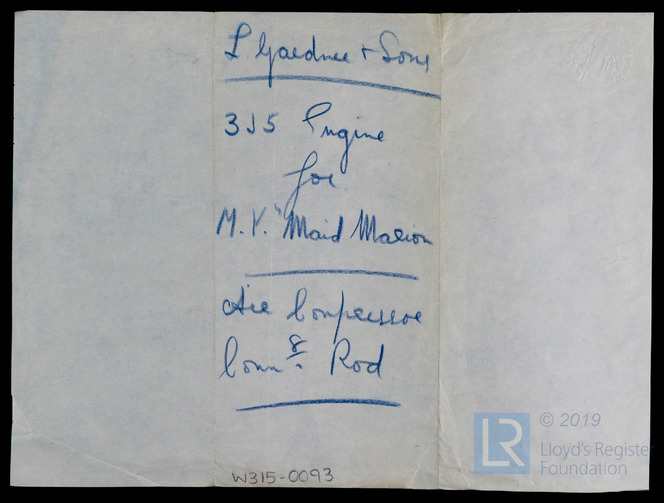 L. Gardner & Sons
3J5 Engine
for
M.V. "Maid Marion
Air Compressor
Conn.g Rod
W315-0093
LR
© 2019
Lloyd's Register
Foundation